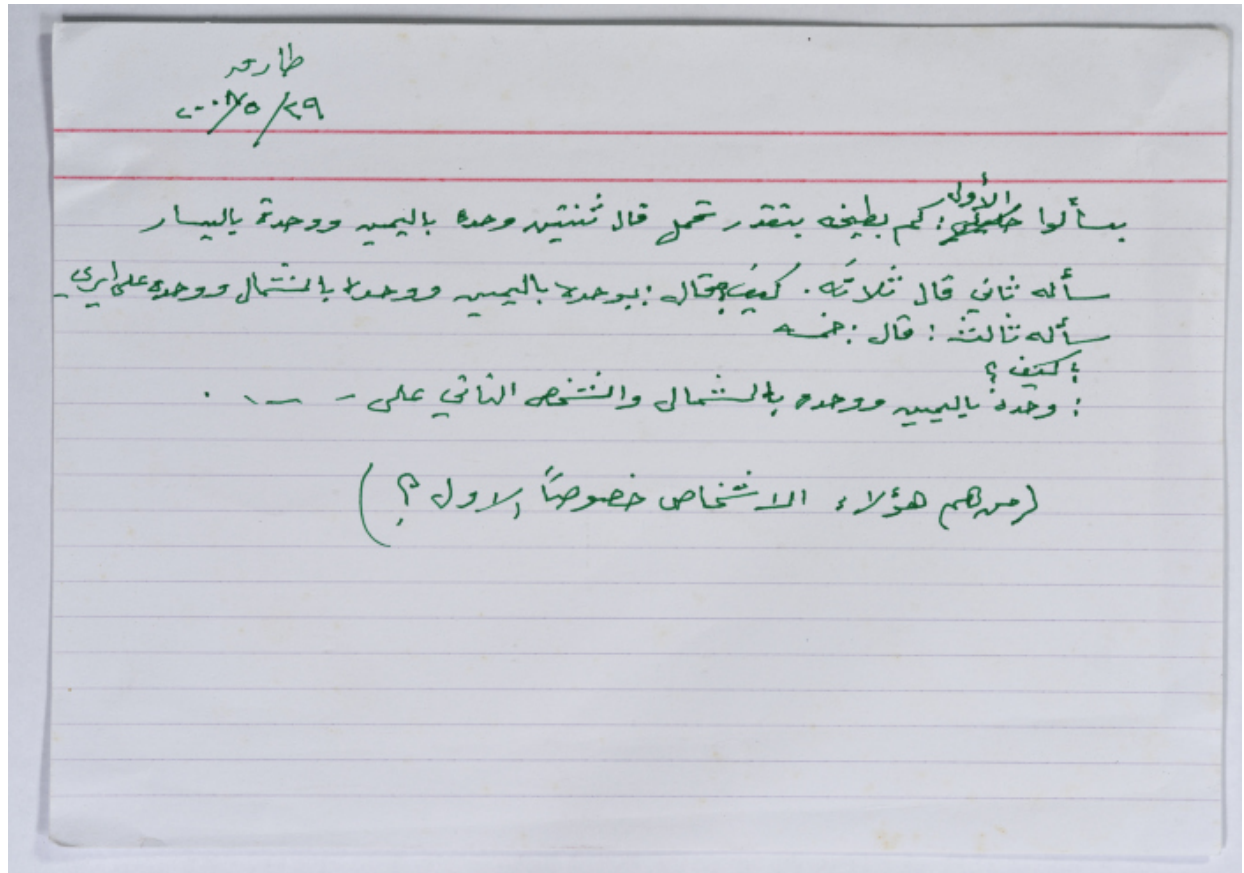 طارق
٢٠٠٧/٥/٢٩
بسألوا الأول : كم بطيخه بتقدر تحمل قال ثنتين وحده باليمين ووحدة باليسار
سأله ثاني قال ثلاثه . كيف؟ قال : وحده باليمين ووحده بالشمال ووحده على ايري
سأله ثالث : قال : خمسه
: كيف ؟
: وحدة باليمين ووحده بالشمال والشخص الثاني على - - - .
(من هم هؤلاء الاشخاص خصوصاً الاول ؟)